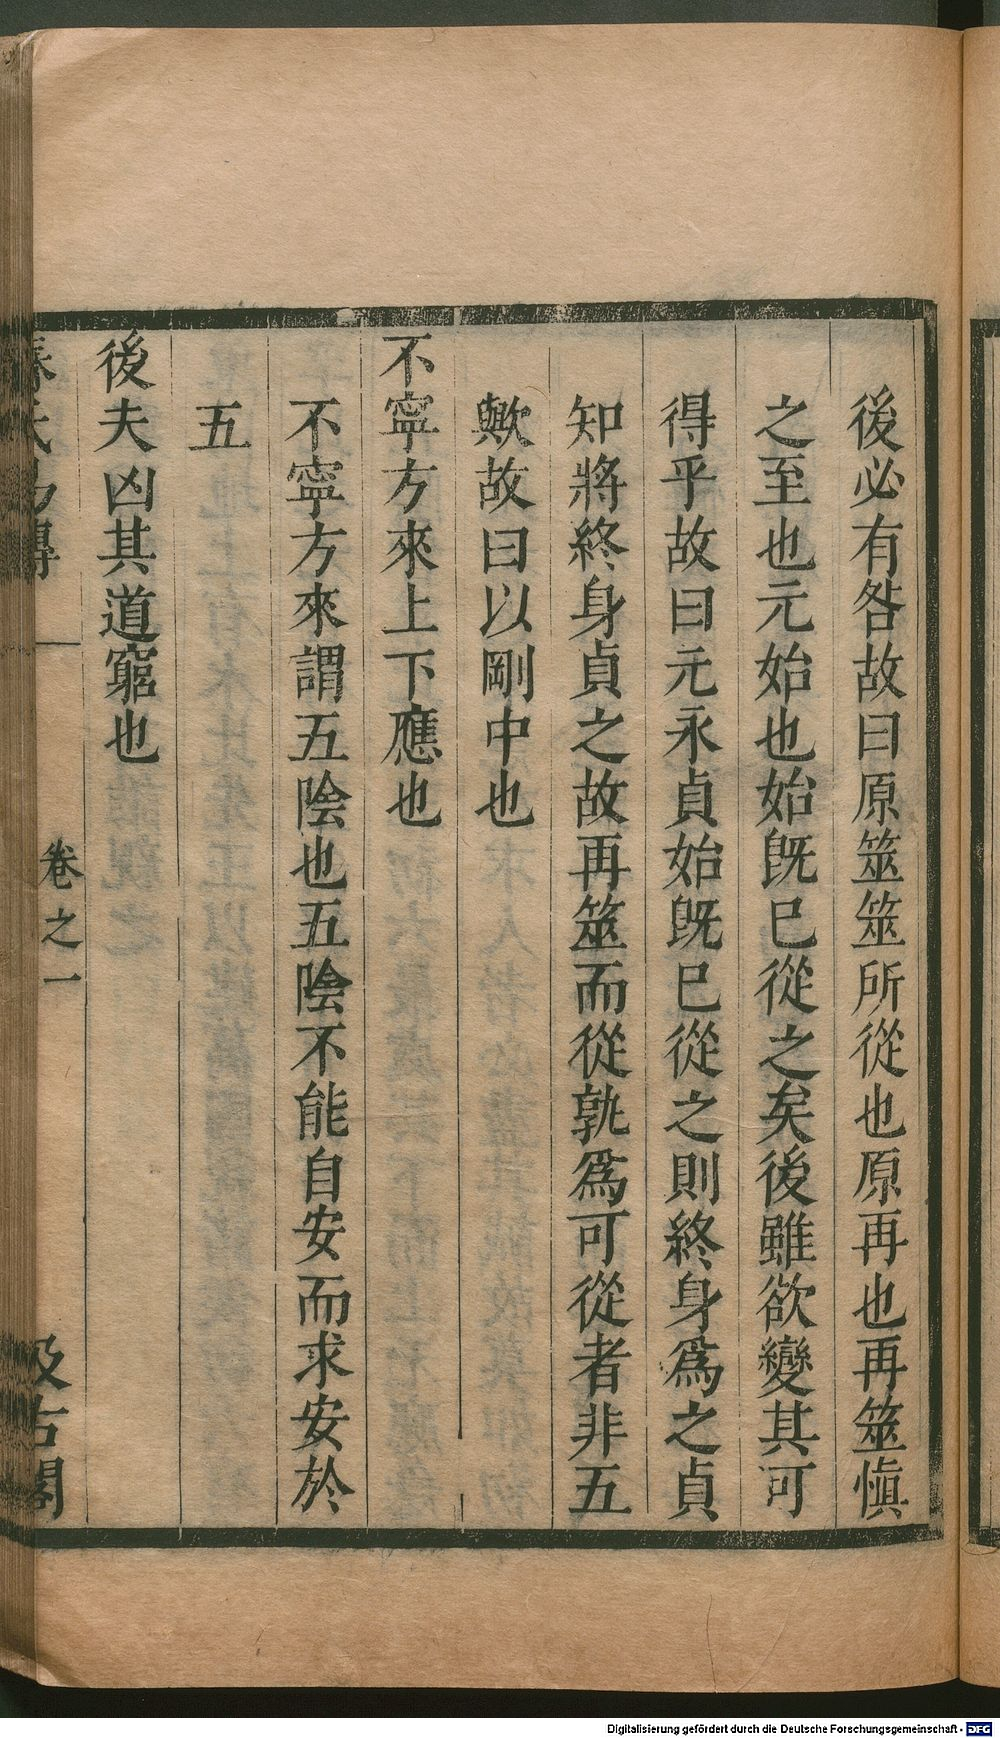 後必有咎故曰原筮筮所從也原再也再筮慎
之至也元始也始旣已從之矣後雖欲變其可
得乎故曰元永貞始旣已從之則終身爲之貞
知將終身貞之故再筮而從孰爲可從者非五
歟故曰以剛中也
不寧方來上下應也
不寧方來謂五陰也五陰不能自安而求安於
五
後夫凶其道窮也
卷之一
汲古閣
Digitalisierung gefördert durch die Deutsche Forschungsgemeinschaft - DFG